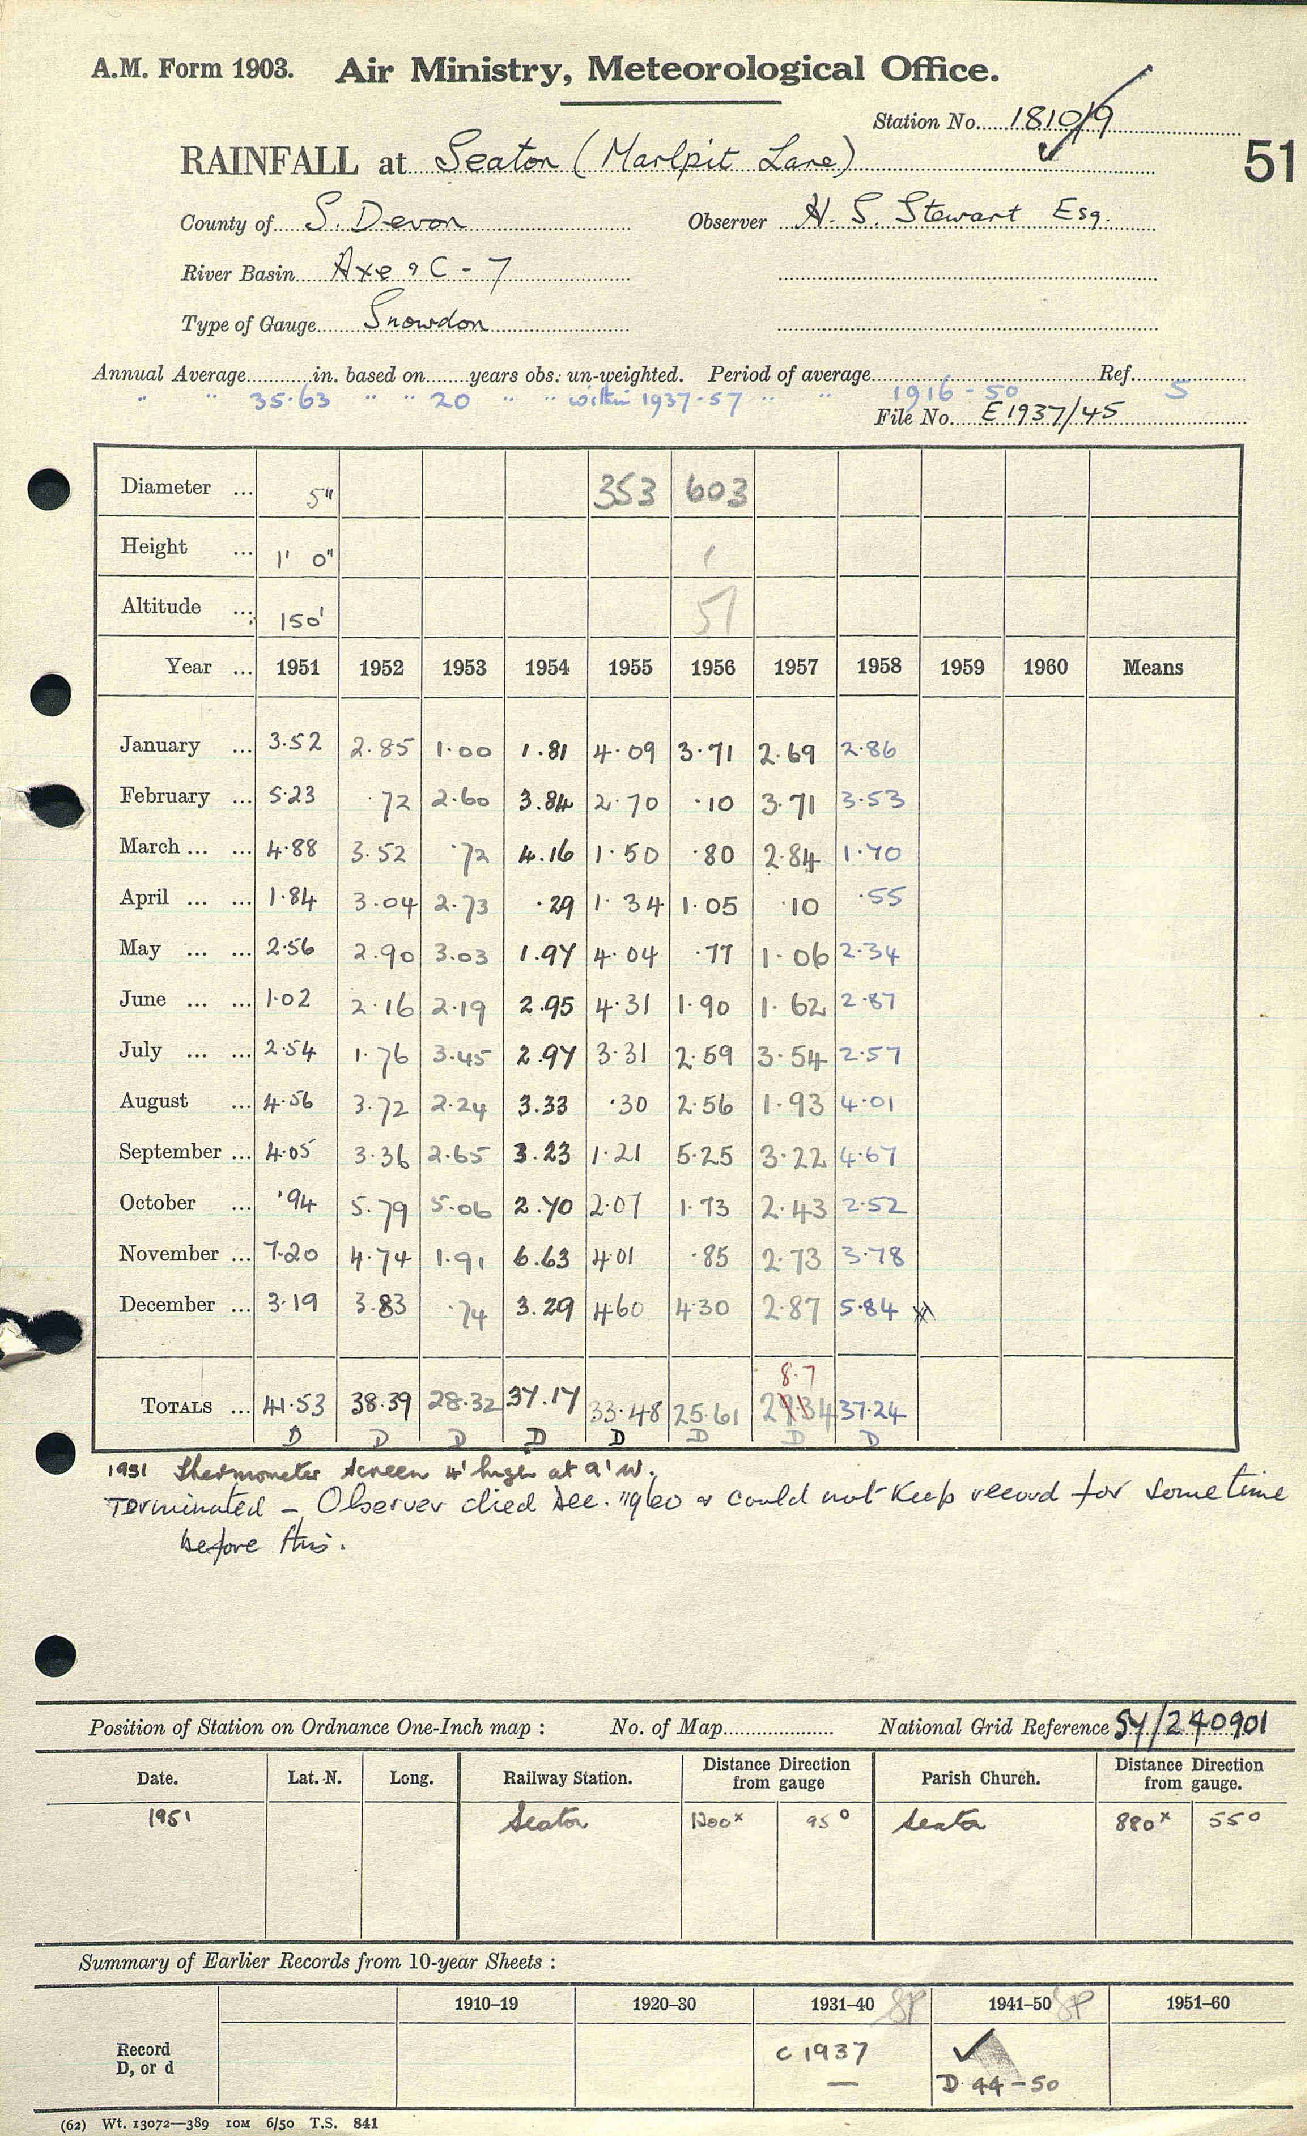 A.M. Form 1903. Air Ministry, Meteorological Office.
Station No. 1810/9
RAINFALL at Seaton (Marlpit Lane)
51
County of S. Devon Observer H. S. Stewart Esq.
River Basin Axe & C - 7
Type of Gauge Snowdon
Annual Average in. based on years obs. un-weighted. Period of average Ref.
" " 35.63 " " 20 " " within 1937-57 " " 1916-50 5
File No. E1937/45
Diameter ... 5" 353 603
Height ... 1' 0" 1
Altitude ... 150' 51
Year ... 1951 1952 1953 1954 1955 1956 1957 1958 1959 1960 Means
January ... 3.52 2.85 1.00 1.81 4.09 3.71 2.69 2.86
February ... 5.23 .72 2.60 3.84 2.70 .10 3.71 3.53
March ... ... 4.88 3.52 .72 4.16 1.50 .80 2.84 1.70
April ... ... 1.84 3.04 2.73 .29 1.34 1.05 .10 .55
May ... ... 2.56 2.90 3.03 1.97 4.04 .77 1.06 2.34
June ... ... 1.02 2.16 2.19 2.95 4.31 1.90 1.62 2.87
July ... ... 2.54 1.76 3.45 2.97 3.31 2.59 3.54 2.57
August ... 4.56 3.72 2.24 3.33 .30 2.56 1.93 4.01
September ... 4.05 3.36 2.65 3.23 1.21 5.25 3.22 4.67
October ... .94 5.79 5.06 2.70 2.07 1.73 2.43 2.52
November ... 7.20 4.74 1.91 6.63 4.01 .85 2.73 3.78
December ... 3.19 3.83 .74 3.29 4.60 4.30 2.87 5.84 x
8.7
TOTALS ... 41.53 38.39 28.32 37.17 33.48 25.61 2934 37.24
D D D D D D D D
1951 Thermometer screen 4' high at 9' W.
Terminated - Observer died Dec. 1960 & could not keep record for some time
before this.
Position of Station on Ordnance One-Inch map : No. of Map National Grid Reference SY/240901
Date. Lat. N. Long. Railway Station. Distance Direction from gauge Parish Church. Distance Direction from gauge.
1951 Seaton 1200x 95° Seaton 880x 55°
Summary of Earlier Records from 10-year Sheets :
1910–19 1920–30 1931–40 SP 1941–50 SP 1951–60
Record D, or d C 1937 — ✓ D 44-50
(62) Wt. 13072—389 10M 6/50 T.S. 841